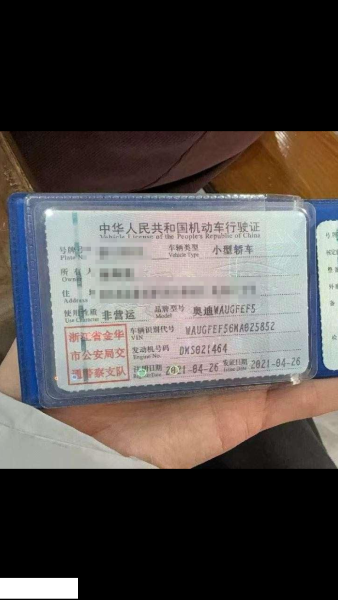 中华人民共和国机动车行驶证
Vehicle License of the People's Republic of China
号牌号码
Plate No.
车辆类型 小型轿车
Vehicle Type
所有人
Owner
住 址
Address
使用性质 非营运
Use Character
品牌型号 奥迪WAUGFEF5
Model
车辆识别代号 WAUGFEF56KA825852
VIN
发动机号码 DKS021464
Engine No.
注册日期 2021-04-26
Register Date
发证日期 2021-04-26
Issue Date
浙江省金华
市公安局交
通警察支队